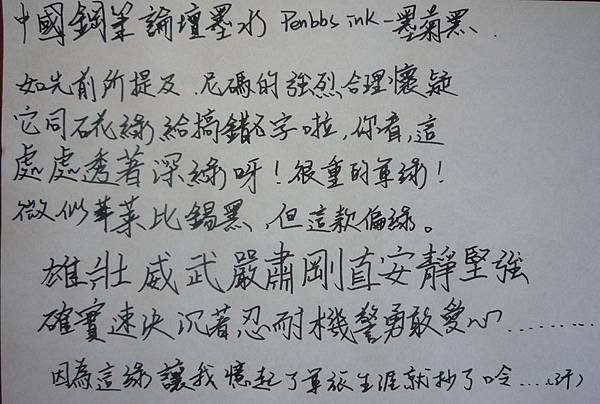 中國鋼筆論壇墨水 Penbbs ink-墨菊黑.
如先前所提及,尼瑪的強烈合理懷疑
它同硫綠給搞錯名字啦,你看,這
處處透著深綠呀!很重的軍綠!
微似華萊比錫黑,但這款偏綠。
雄壯威武嚴肅剛直安靜堅強
確實速決沉著忍耐機警勇敢愛心.........
因為這綠讓我憶起了軍旅生涯就抄了哈...(汗)